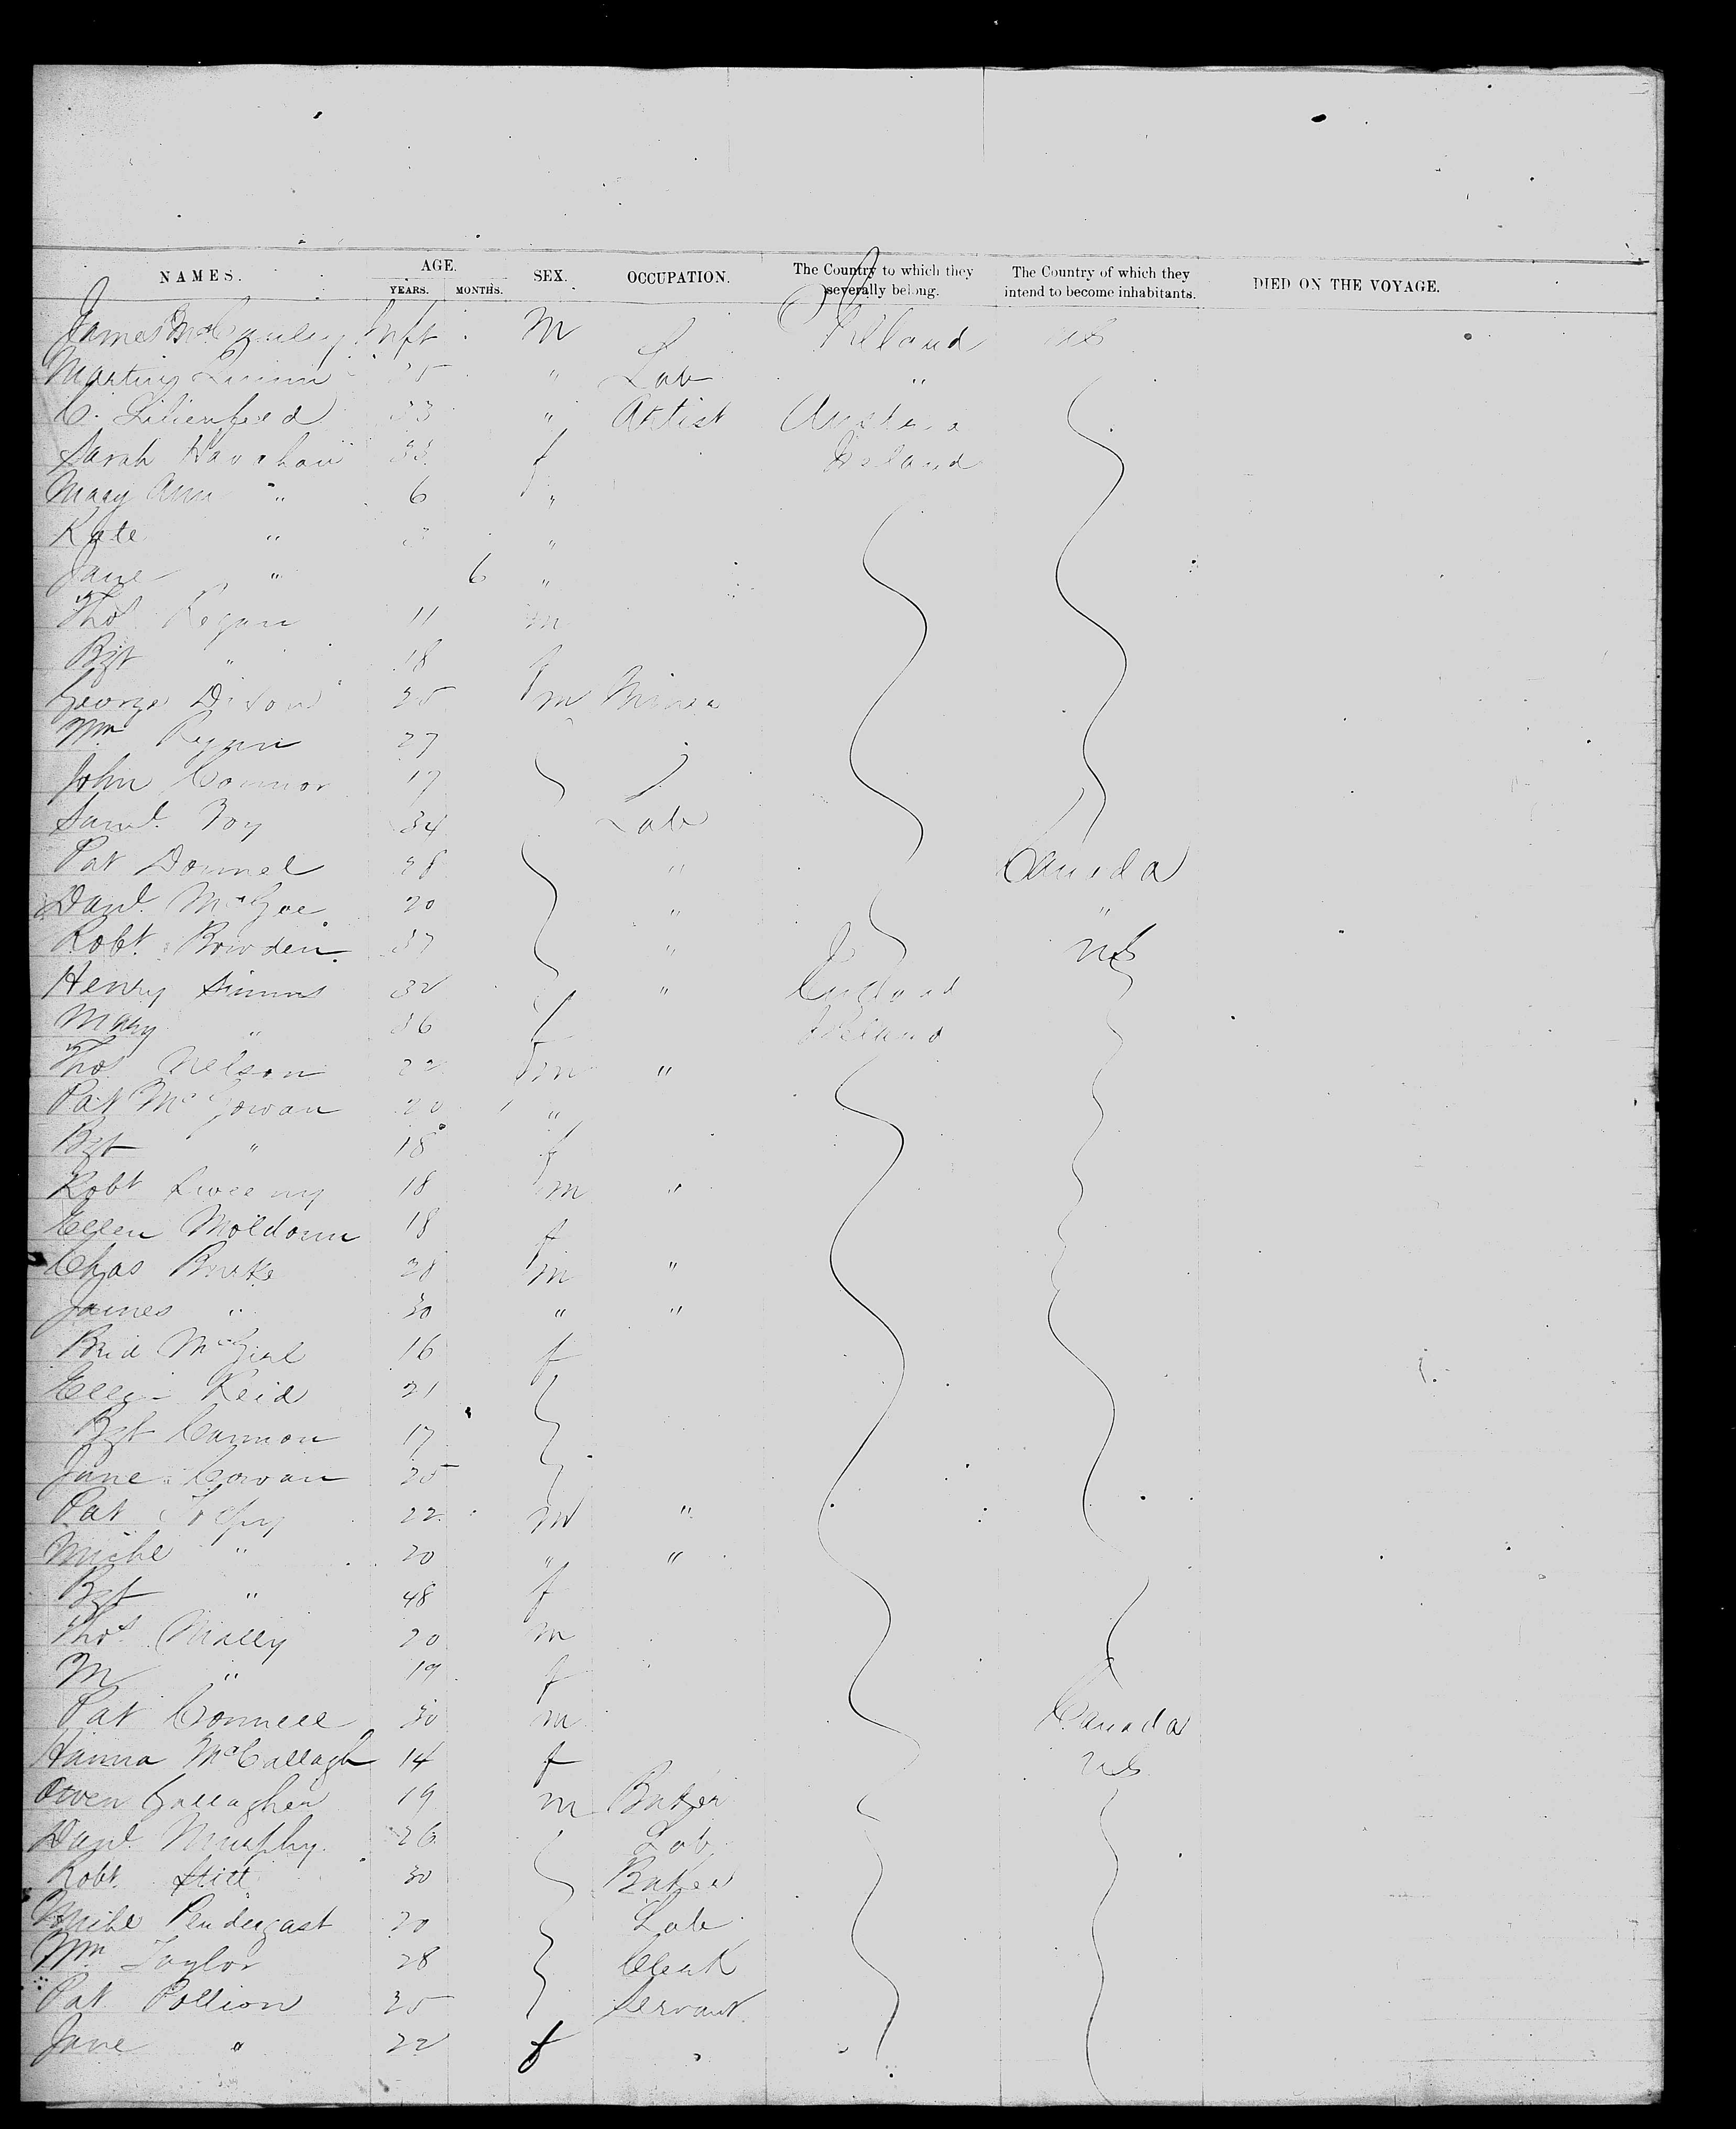 NAMES. AGE. YEARS. MONTHS. SEX. OCCUPATION. The Country to which they severally belong. The Country of which they intend to become inhabitants. DIED ON THE VOYAGE.
James McCauley Inft M Ireland US
Martin 25 " Lab "
C. Lilienfeed 33 " Artist Austria
Sarah Hanahan 33 f Ireland
Mary Ann " 6 "
Kate " 3 "
Jane " 6 "
Thos Regan 11 m
Bgt " 18 f
George Dixon 35 m Miner
Wm Regan 27
John Connor 17
Saml. Foy 34 Lab
Pat Donnel 28 " Canada
Danl. McGee 20 " "
Robt. Bowden 37 " US
Henry Simms 32 " England
Mary " 36 f Ireland
Thos Nelson 22 m "
Pat McGowan 20 "
Bgt " 18 f
Robt Sweeny 18 m "
Ellen Moldoun 18 f
Chas Burke 28 m "
James " 30 " "
Brid McGirl 16 f
Ellen Reid 21
Bgt Cannon 17
Jane Cowan 25
Pat 22 m "
Michl " 20 " "
Bgt " 48 f
Thos Mally 20 m
M " 19 f
Pat Connell 30 m Canada
Hanna McCallagh 14 f US
Owen Gallagher 19 m Baker
Danl. Murphy. 26 Lab
Robt. Stitt 30 Baker
Michl Pendergast 20 Lab
Wm Taylor 28 Clerk
Pat Pollion 35 Servant
Jane " 22 f "